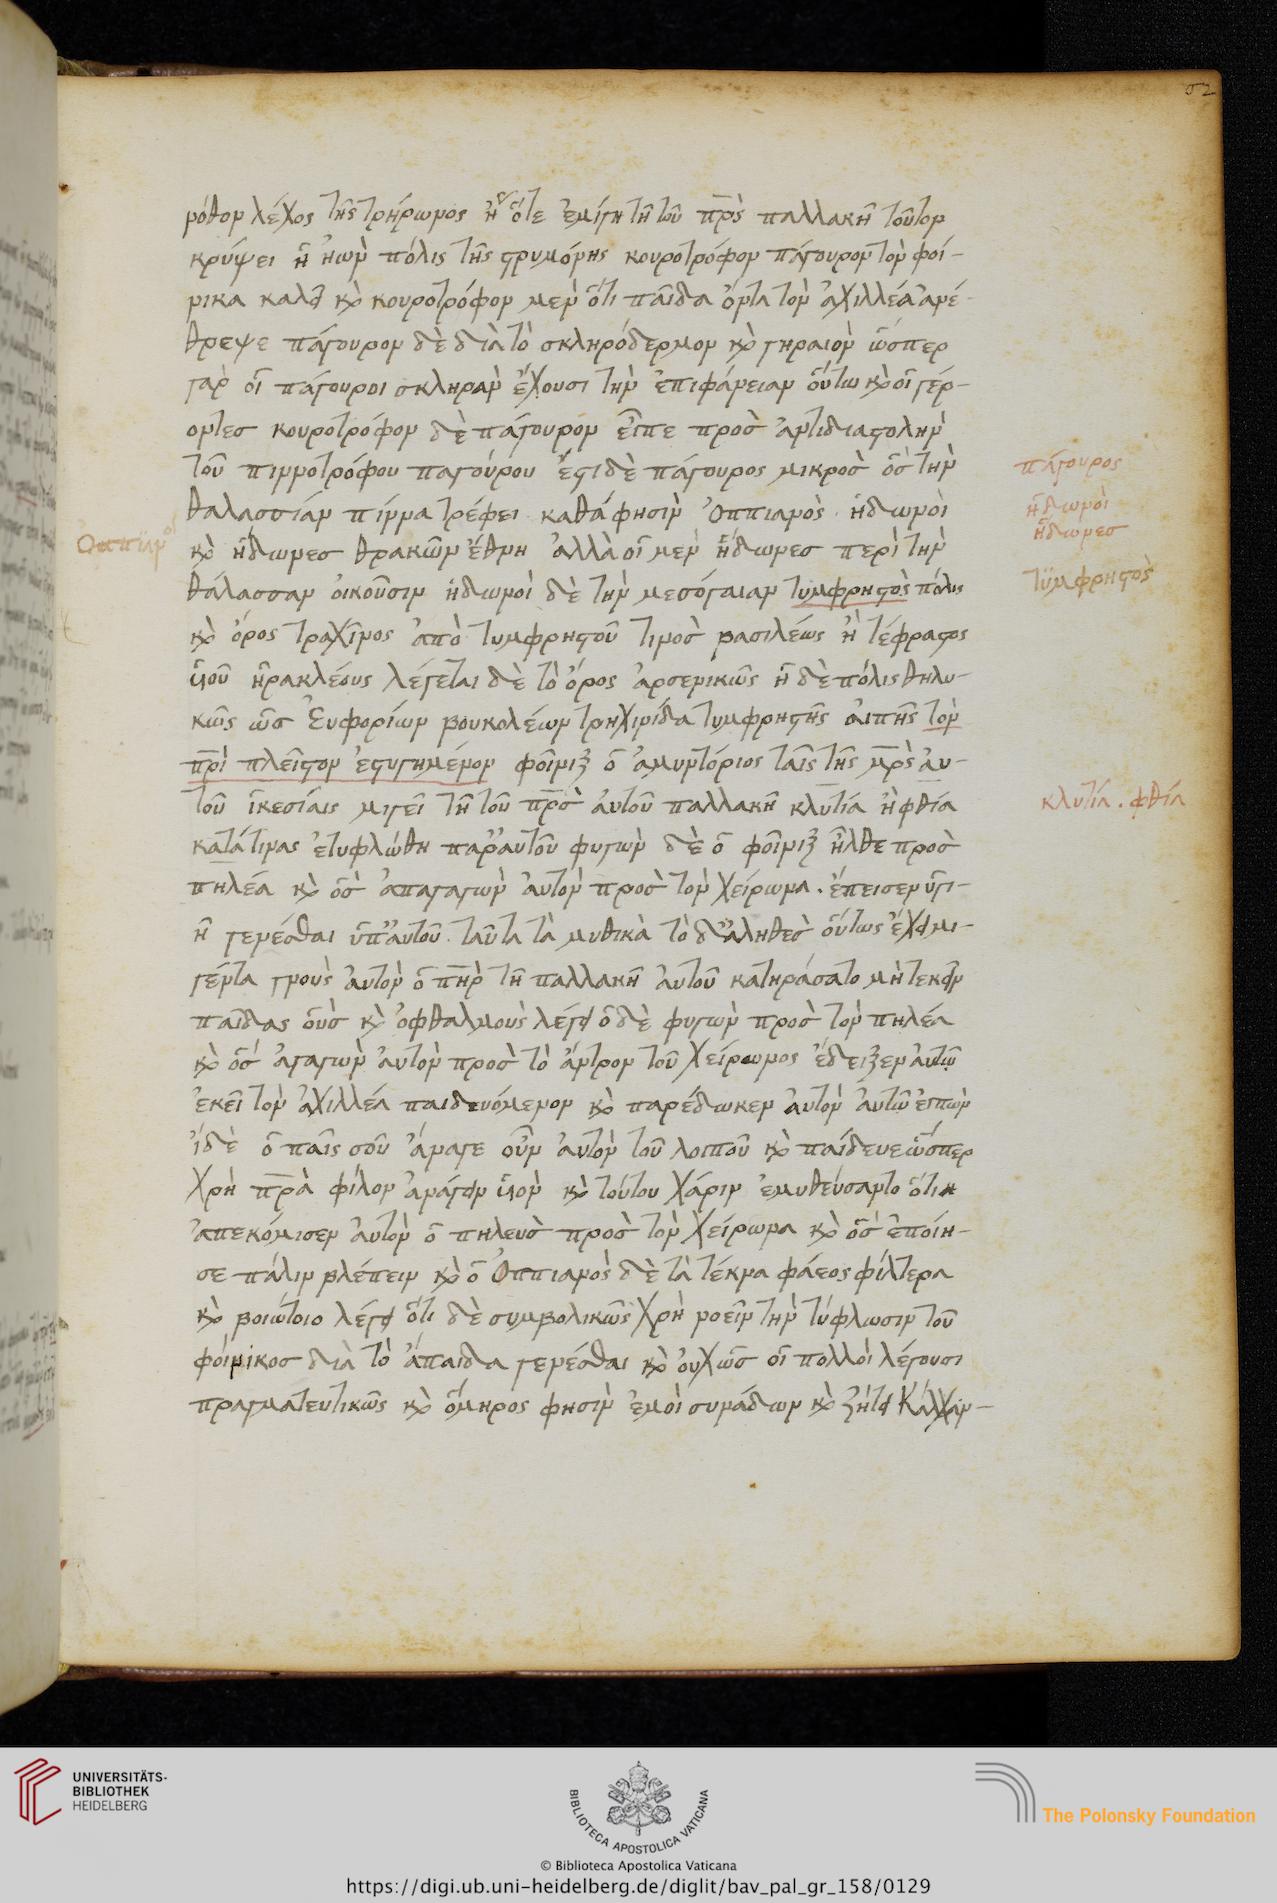 52
ρόθον λέχος τῆς τρήρωνος ἢ ὅτε ἐμίγη τῆ τοῦ πρ̅ς παλλακῆ τοῦτον
κρύψει ἡ ἠιὼν πόλις τῆς στρυμόνης κουροτρόφον πάγουρον τὸν φοί-
νικα καλεῖ κὸ κουροτρόφον μεν ὅτι παῖδα ὄντα τὸν ἀχιλλέα ἀνέ-
θρεψε πάγουρον δὲ διὰ τὸ σκληρόδερμον κὸ γηραιὸν ὥσπερ
γὰρ οἱ πάγουροι σκληρὰν ἔχουσι τὴν ἐπιφάνειαν οὕτω κὸ οἱ γέρ-
οντες κουροτρόφον δὲ πάγουρον εἶπε προς ἀντιδιαστολὴν
τοῦ πιννοτρόφου παγούρου ἔστι δὲ πάγουρος μικρὸς ὃς τὴν
θαλασσίαν πίννα τρέφει καθά φησιν Ὀππιανὸς ἠδωνοὶ
κὸ ἤδωνες θρακῶν ἔθνη ἀλλὰ οἱ μεν ἤδωνες περὶ τὴν
θάλασσαν οἰκοῦσιν ἠδωνοὶ δὲ τὴν μεσόγαιαν τυμφρηστὸς πόλις
κὸ ὄρος τραχῖνος ἀπὸ τυμφρηστοῦ τινος βασιλέως ἢ τέφραστος
υἱοῦ ἡρακλέους λέγεται δὲ τὸ ὄρος ἀρσενικῶς ἡ δὲ πόλις θηλυ-
κῶς ὡς Ἐυφορίων βουκολέων τρηχινίδα τυμφρηστῆς αἰπῆς τὸν
πρ̅ὶ πλεῖστον ἐστυγημένον φοῖνιξ ὁ ἀμυντόριος ταῖς τῆς μρ̅ς ἀυ-
τοῦ ἱκεσίαις μιγεῖ τῆ τοῦ πρ̅ς ἀυτοῦ παλλακῆ κλυτία ἢ φθία
κατά τινας ἐτυφλώθη παρ' ἀυτοῦ φυγὼν δὲ ὁ φοῖνιξ ἦλθε προς
πηλέα κὸ ὃς ἀπαγαγὼν ἀυτὸν προς τὸν χείρωνα. ἔπεισεν ὑγι-
ῆ γενέσθαι ὑπ' ἀυτοῦ. ταῦτα τὰ μυθικὰ τὸ δ' ἀληθες οὕτως ἔχει μι-
γέντα γνοὺς ἀυτὸν ὁ πη̅ρ τῆ παλλακῆ ἀυτοῦ κατηράσατο μὴ τεκεῖν
παῖδας οὓς κὸ ὀφθαλμοὺς λέγει ὁ δὲ φυγὼν προς τὸν πηλέα
κὸ ὃς ἀγαγὼν ἀυτὸν προς τὸ ἄντρον τοῦ χείρωνος ἔδειξεν ἀυτῶ
ἐκεῖ τὸν ἀχιλλέα παιδευόμενον κὸ παρέδωκεν ἀυτὸν ἀυτῶ εἰπὼν
ἰδὲ ὁ παῖς σοῦ ἄναγε οὖν ἀυτὸν τοῦ λοιποῦ κὸ παίδευε ὥσπερ
χρὴ πρ̅α φίλον ἀνάγειν υἱὸν κὸ τούτου χάριν ἐμυθεύσαντο ὅτι
ἀπεκόμισεν ἀυτὸν ὁ πηλευς προς τὸν χείρωνα κὸ ὃς ἐποίη-
σε πάλιν βλέπειν κὸ ὁ Ὀππιανὸς δὲ τὰ τέκνα φάεος φίλτερα
κὸ βοιώτοιο λέγει ὅτι δὲ συμβολικῶς χρὴ νοεῖν τὴν τύφλωσιν τοῦ
φοίνικος διὰ τὸ ἄπαιδα γενέσθαι κὸ ὀυχ ὡς οἱ πολλοὶ λέγουσι
πραγματευτικῶς κὸ ὅμηρος φησὶν ἐμοὶ συνάδων κὸ ζήτει
Ὀππϊαν
πάγουρος
ἠδωνοὶ
ἤδωνες
τϋμφρηστὸς
κλυτία. φθία
UNIVERSITÄTS-
BIBLIOTHEK
HEIDELBERG
BIBLIOTECA APOSTOLICA VATICANA
© Biblioteca Apostolica Vaticana
The Polonsky Foundation
https://digi.ub.uni-heidelberg.de/diglit/bav_pal_gr_158/0129